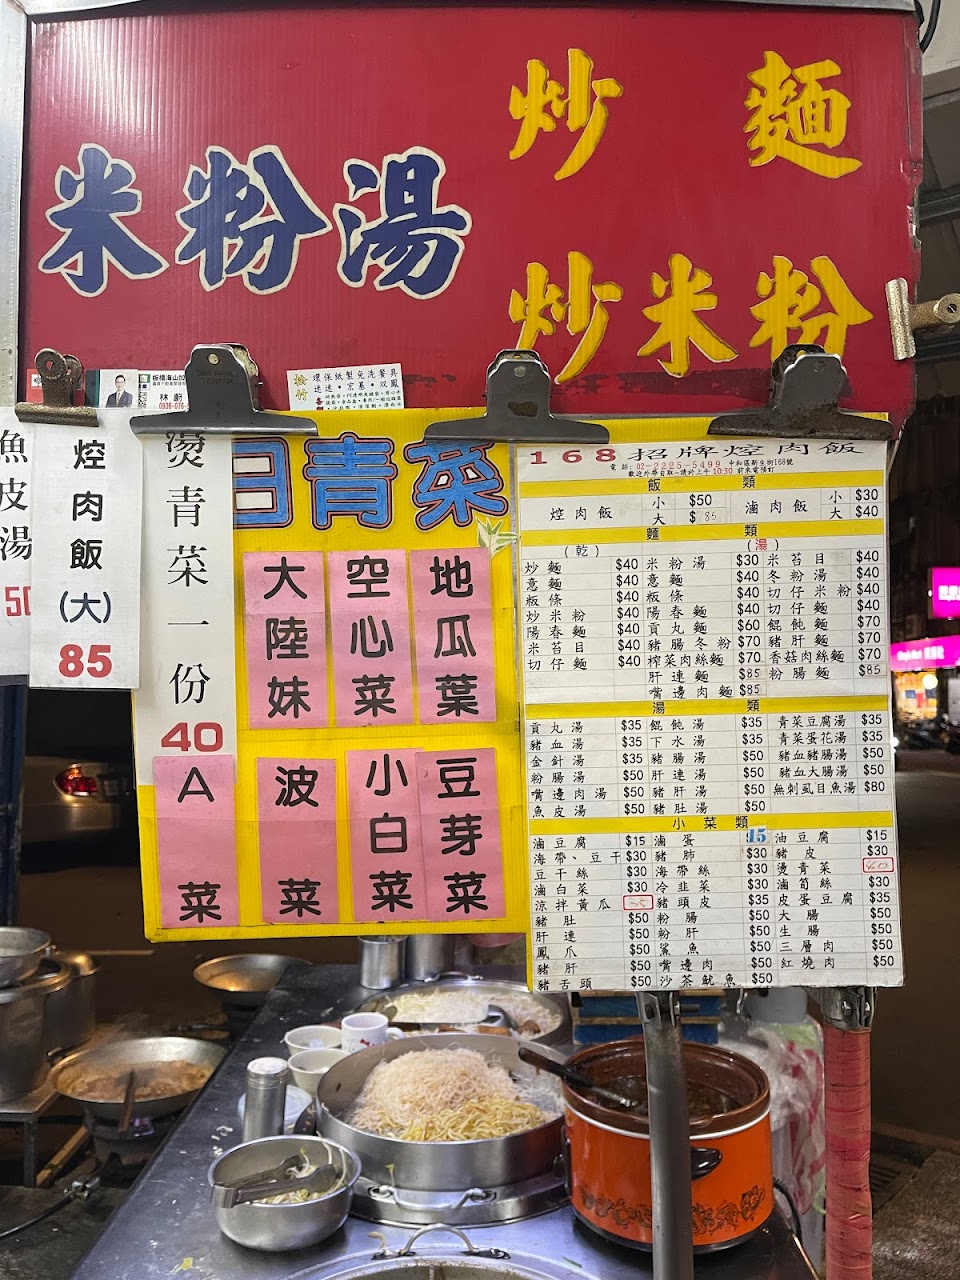 炒麵
米粉湯
炒米粉
板橋海山加
林蔚
0936-076-
松竹
環保紙製免洗餐具
速達・宏基・双鳳
魚皮湯
50
焢肉飯(大)
85
燙青菜一份
40
日青菜
大陸妹
空心菜
地瓜葉
A菜
波菜
小白菜
豆芽菜
168招牌焢肉飯
電話:02-2225-5499 中和區新生街168號
歡迎外帶自取-請於上午10:30前來電預訂
飯類
焢肉飯 小 $50 大 $85 滷肉飯 小 $30 大 $40
麵類
(乾) (湯)
炒麵 $40 米粉湯 $30 米苔目 $40
意麵 $40 意麵 $40 冬粉湯 $40
粄條 $40 粄條 $40 切仔米粉 $40
炒米粉 $40 陽春麵 $40 切仔麵 $40
陽春麵 $40 貢丸麵 $60 餛飩麵 $70
米苔目 $40 豬腸冬粉 $70 豬肝麵 $70
切仔麵 $40 榨菜肉絲麵 $70 香菇肉絲麵 $70
肝連麵 $85 粉腸麵 $85
嘴邊肉麵 $85
湯類
貢丸湯 $35 餛飩湯 $35 青菜豆腐湯 $35
豬血湯 $35 下水湯 $35 青菜蛋花湯 $35
金針湯 $35 豬腸湯 $50 豬血豬腸湯 $50
粉腸湯 $50 肝連湯 $50 豬血大腸湯 $50
嘴邊肉湯 $50 豬肝湯 $50 無刺虱目魚湯 $80
魚皮湯 $50 豬肚湯 $50
小菜類
滷豆腐 $15 滷蛋 15 油豆腐 $15
海帶、豆干 $30 豬肺 $30 豬皮 $30
豆干絲 $30 海帶絲 $30 燙青菜 40
滷白菜 $30 冷韭菜 $30 滷筍絲 $30
涼拌黃瓜 豬頭皮 $35 皮蛋豆腐 $35
豬肚 $50 粉腸 $50 大腸 $50
肝連 $50 粉肝 $50 生腸 $50
鳳爪 $50 鯊魚 $50 三層肉 $50
豬肝 $50 嘴邊肉 $50 紅燒肉 $50
豬舌頭 $50 沙茶魷魚 $50